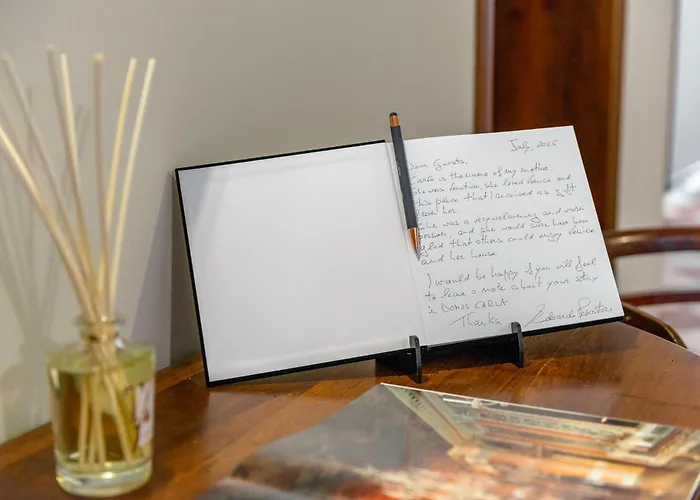 July, 2025
Dear Guests,
Carla is the name of my mother.
She was Venetian, she loved Venice and
this place that I received as gift
from her.
She was a very welcoming and warm
person, and she would sure have been
glad that others could enjoy Venice
and her house.
I would be happy if you will feel
to leave a note about your stay
in DOMUS CARLA
Thanks